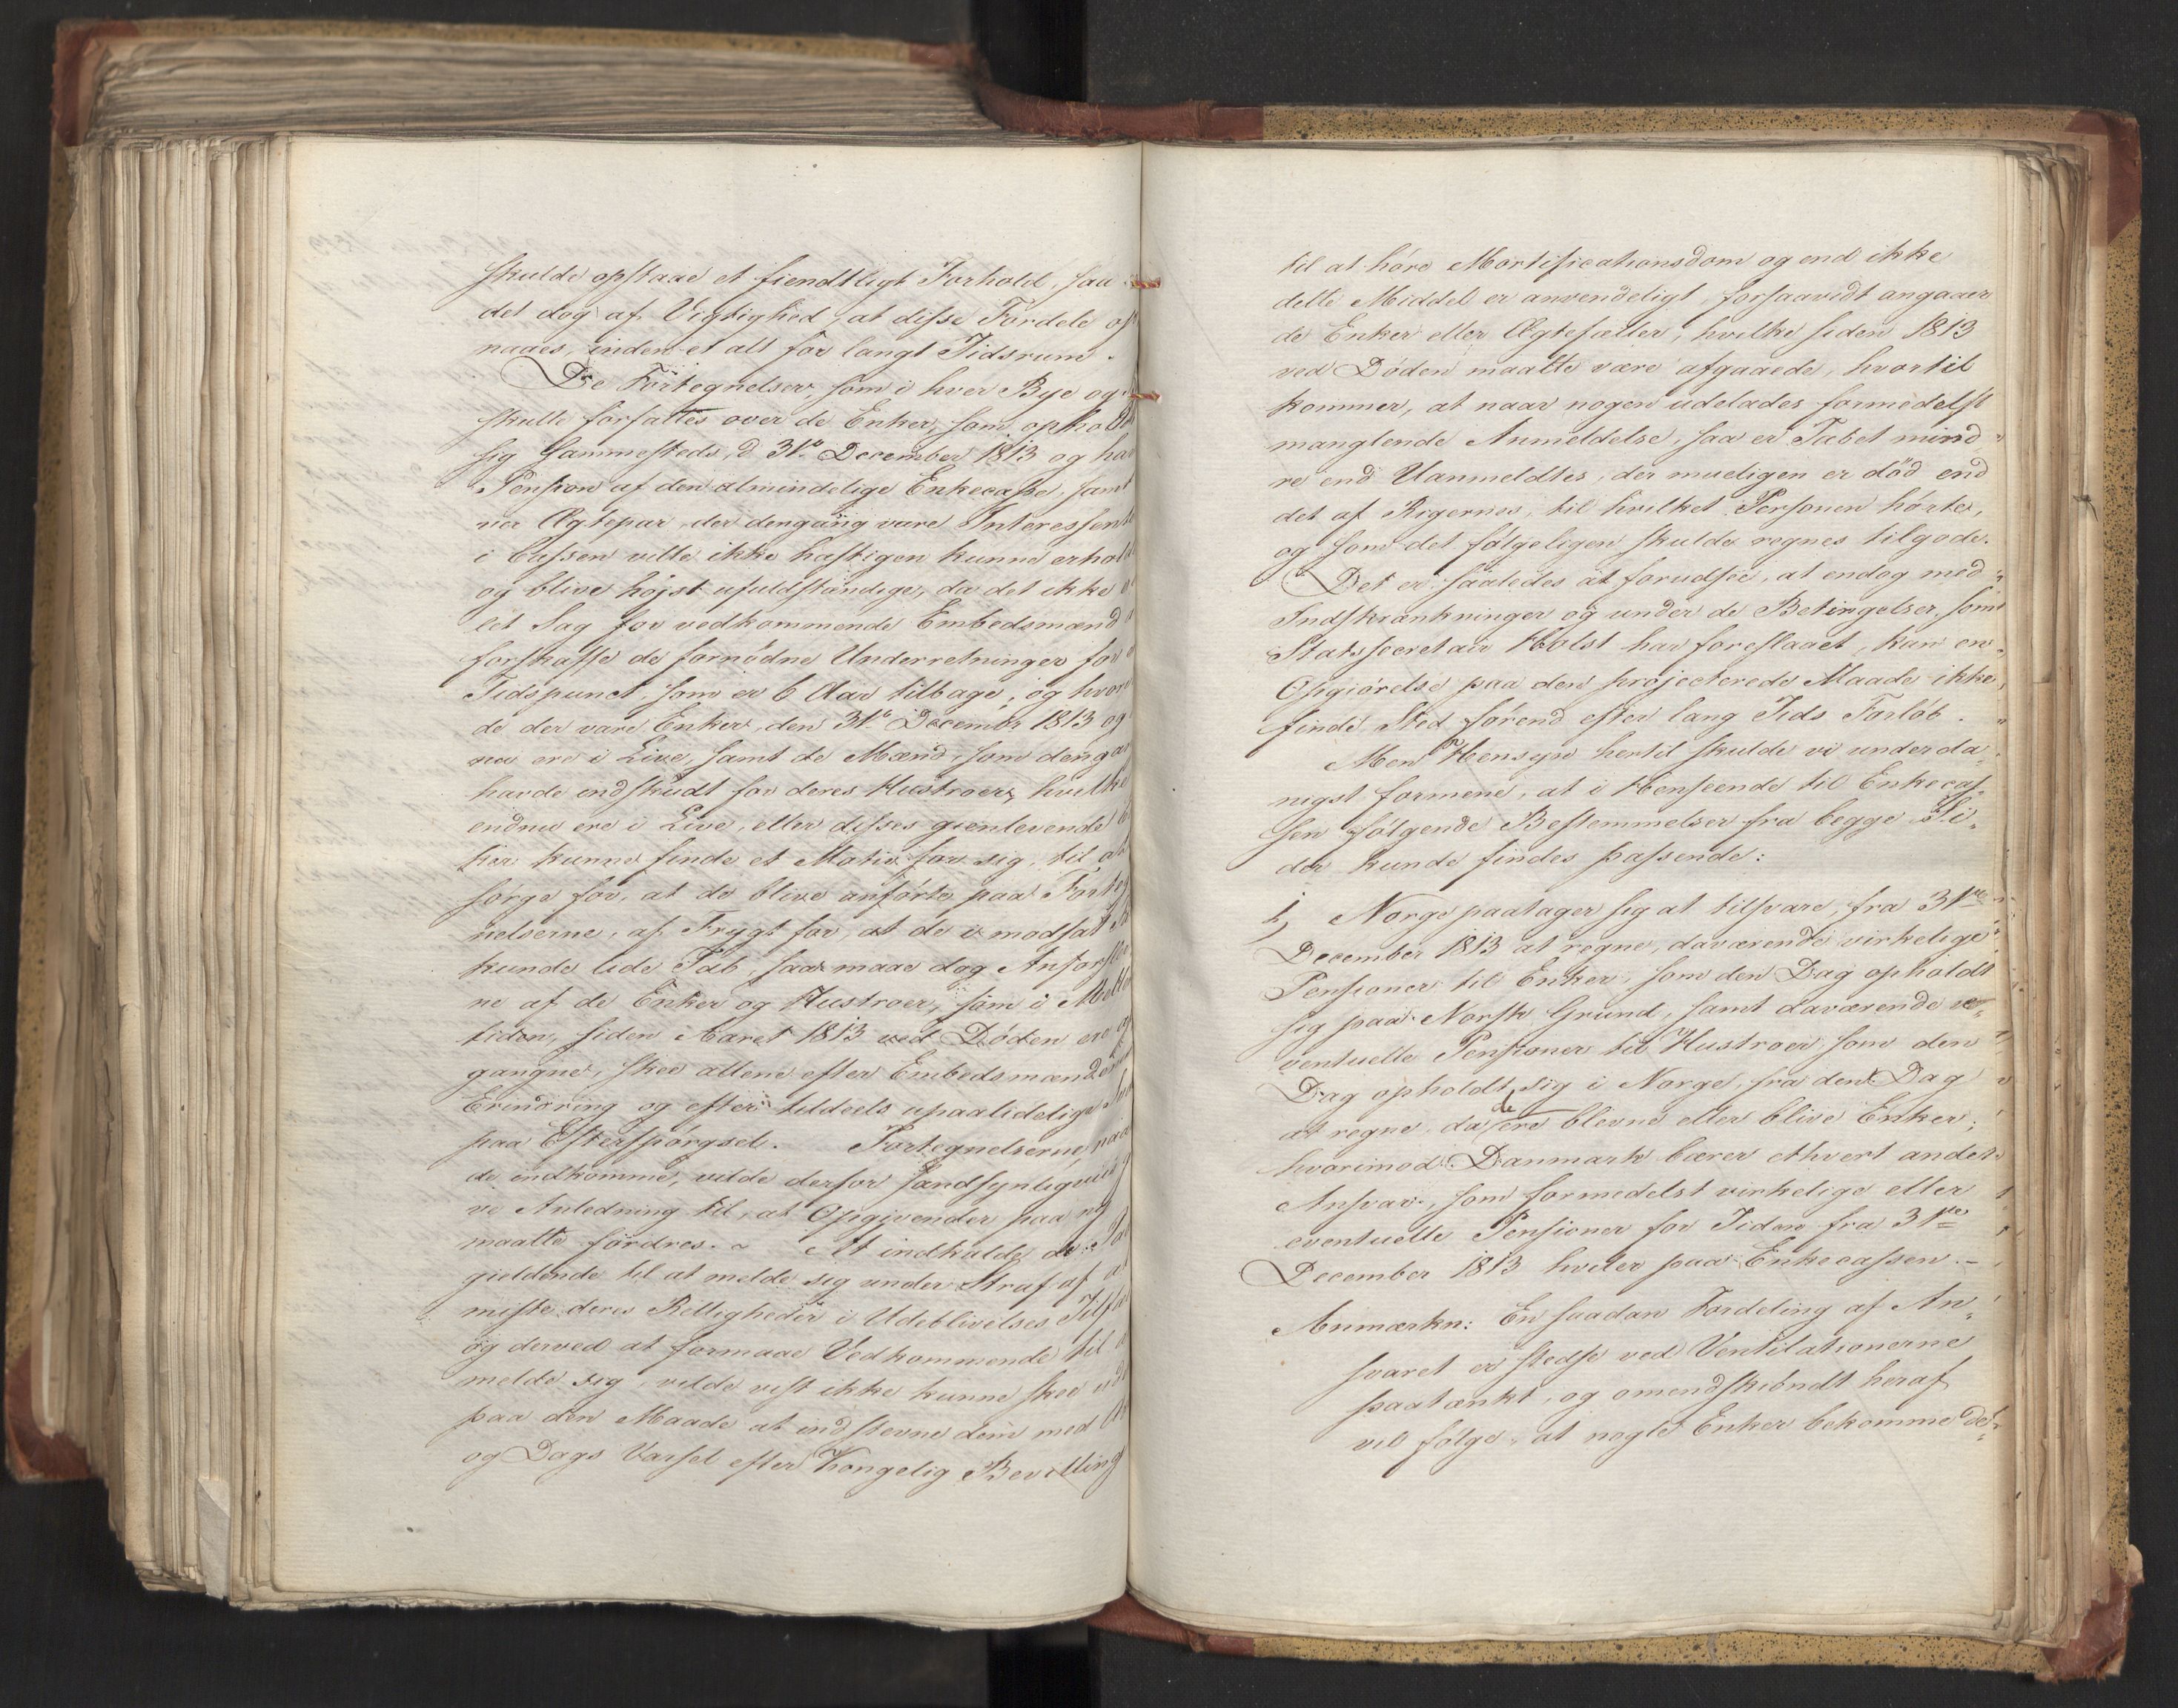 skulde opstaae et fiendtligt Forhold, saa
det dog af Vigtighed, at disse Fordele op
naaes, inden et alt for langt Tidsrum.
De Fortegnelser, som i hver Bye og
skulle forfattes over de Enker, som opholdt
sig sammesteds, d 31te December 1813 og har
Pension af den almindelige Enkecasse, samt
over Ægtepar, der dengang vare Interessente
i Cassen ville ikke hastigen kunne erholde
og blive højst ufuldstændige, da det ikke e
let Sag for vedkommende Embedsmænd a
forskaffe de fornødne Underretninger for e
Tidspunct, som er 6 Aar tilbage, og hvor
de der vare Enker, den 31te Decembr 1813 og
nu ere i Live, samt de Mænd, som dengan
havde indskudt for deres Hustroer, hvilke
endnu ere i Live, eller disses gienlevende E
ker kunne finde et Motiv for sig, til at
sørge for, at de blive anførte paa Forteg
nelserne, af Frygt for, at de i modsat
kunde lide Tab, saa maae dog Anførsle
ne af de Enker og Hustroer, som i Melle
tiden, siden Aaret 1813 ved Døden ere af
gangne, skee allene efter Embedsmændenes
Erindring og efter tildeels upaalidelige
paa Efterspørgsel. Fortegnelserne, naar
de indkomme, vilde derfor sandsynligviis
ve Anledning til, at Opgivender paa ny
maatte fordres. ~ At indkalde de
gieldende til at melde sig under Straf af at
miste deres Rettigheder i Udeblivelses Tilfæ
og derved at formaae Vedkommende til a
melde sig, vilde vist ikke kunne skee ud
paa den Maade at indstevne dem med Aa
og Dags Varsel efter Kongelig Bevilling
til at høre Mortificationsdom og end ikke
dette Middel er anvendeligt, forsaavidt angaaer
de Enker eller Ægtefæller, hvilke siden 1813
ved Døden maatte være afgaaede, hvortil
kommer, at naar nogen udelades formedelst
manglende Anmeldelse, saa er Tabet mind
re end Uanmeldtes, der mueligen er død end
det af Rigernes, til hvilket Personen hørte,
og som det følgeligen skulde regnes tilgode.
Det er saaledes at forudsee, at endog med
Indskrænkninger og under de Betingelser, som
Statssecretair Holst har foreslaaet, kan en
Opgiørelse paa den projecterede Maade ikke
finde Sted førend efter lang Tids Forløb.
Men Hensyn hertil skulde vi underda-
nigst formene, at i Henseende til Enkecas-
sen følgende Bestemmelser fra begge Si-
der kunde findes passende:
1, Norge paatager sig at tilsvare, fra 31te
December 1813 at regne, daværende virkelige
Pensioner til Enker, som den Dag opholdt
sig paa Norsk Grund, samt daværende e-
ventuelle Pensioner til Hustroer som den
Dag opholdt sig i Norge, fra den Dag
at regne, da de ere blevne eller blive Enker;
hvorimod Danmark bærer ethvert andet
Ansvar, som formedelst virkelige eller
eventuelle Pensioner for Tiden fra 31te
December 1813 hviler paa Enkecassen. -
Anmærkn: En saadan Fordeling af An-
svaret er stedse ved Ventilationerne
paatænkt, og omendskiøndt heraf
vil følge, at nogle Enker bekomme de-